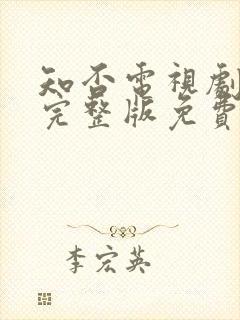 知否電視劇
完整版免費
李宏英